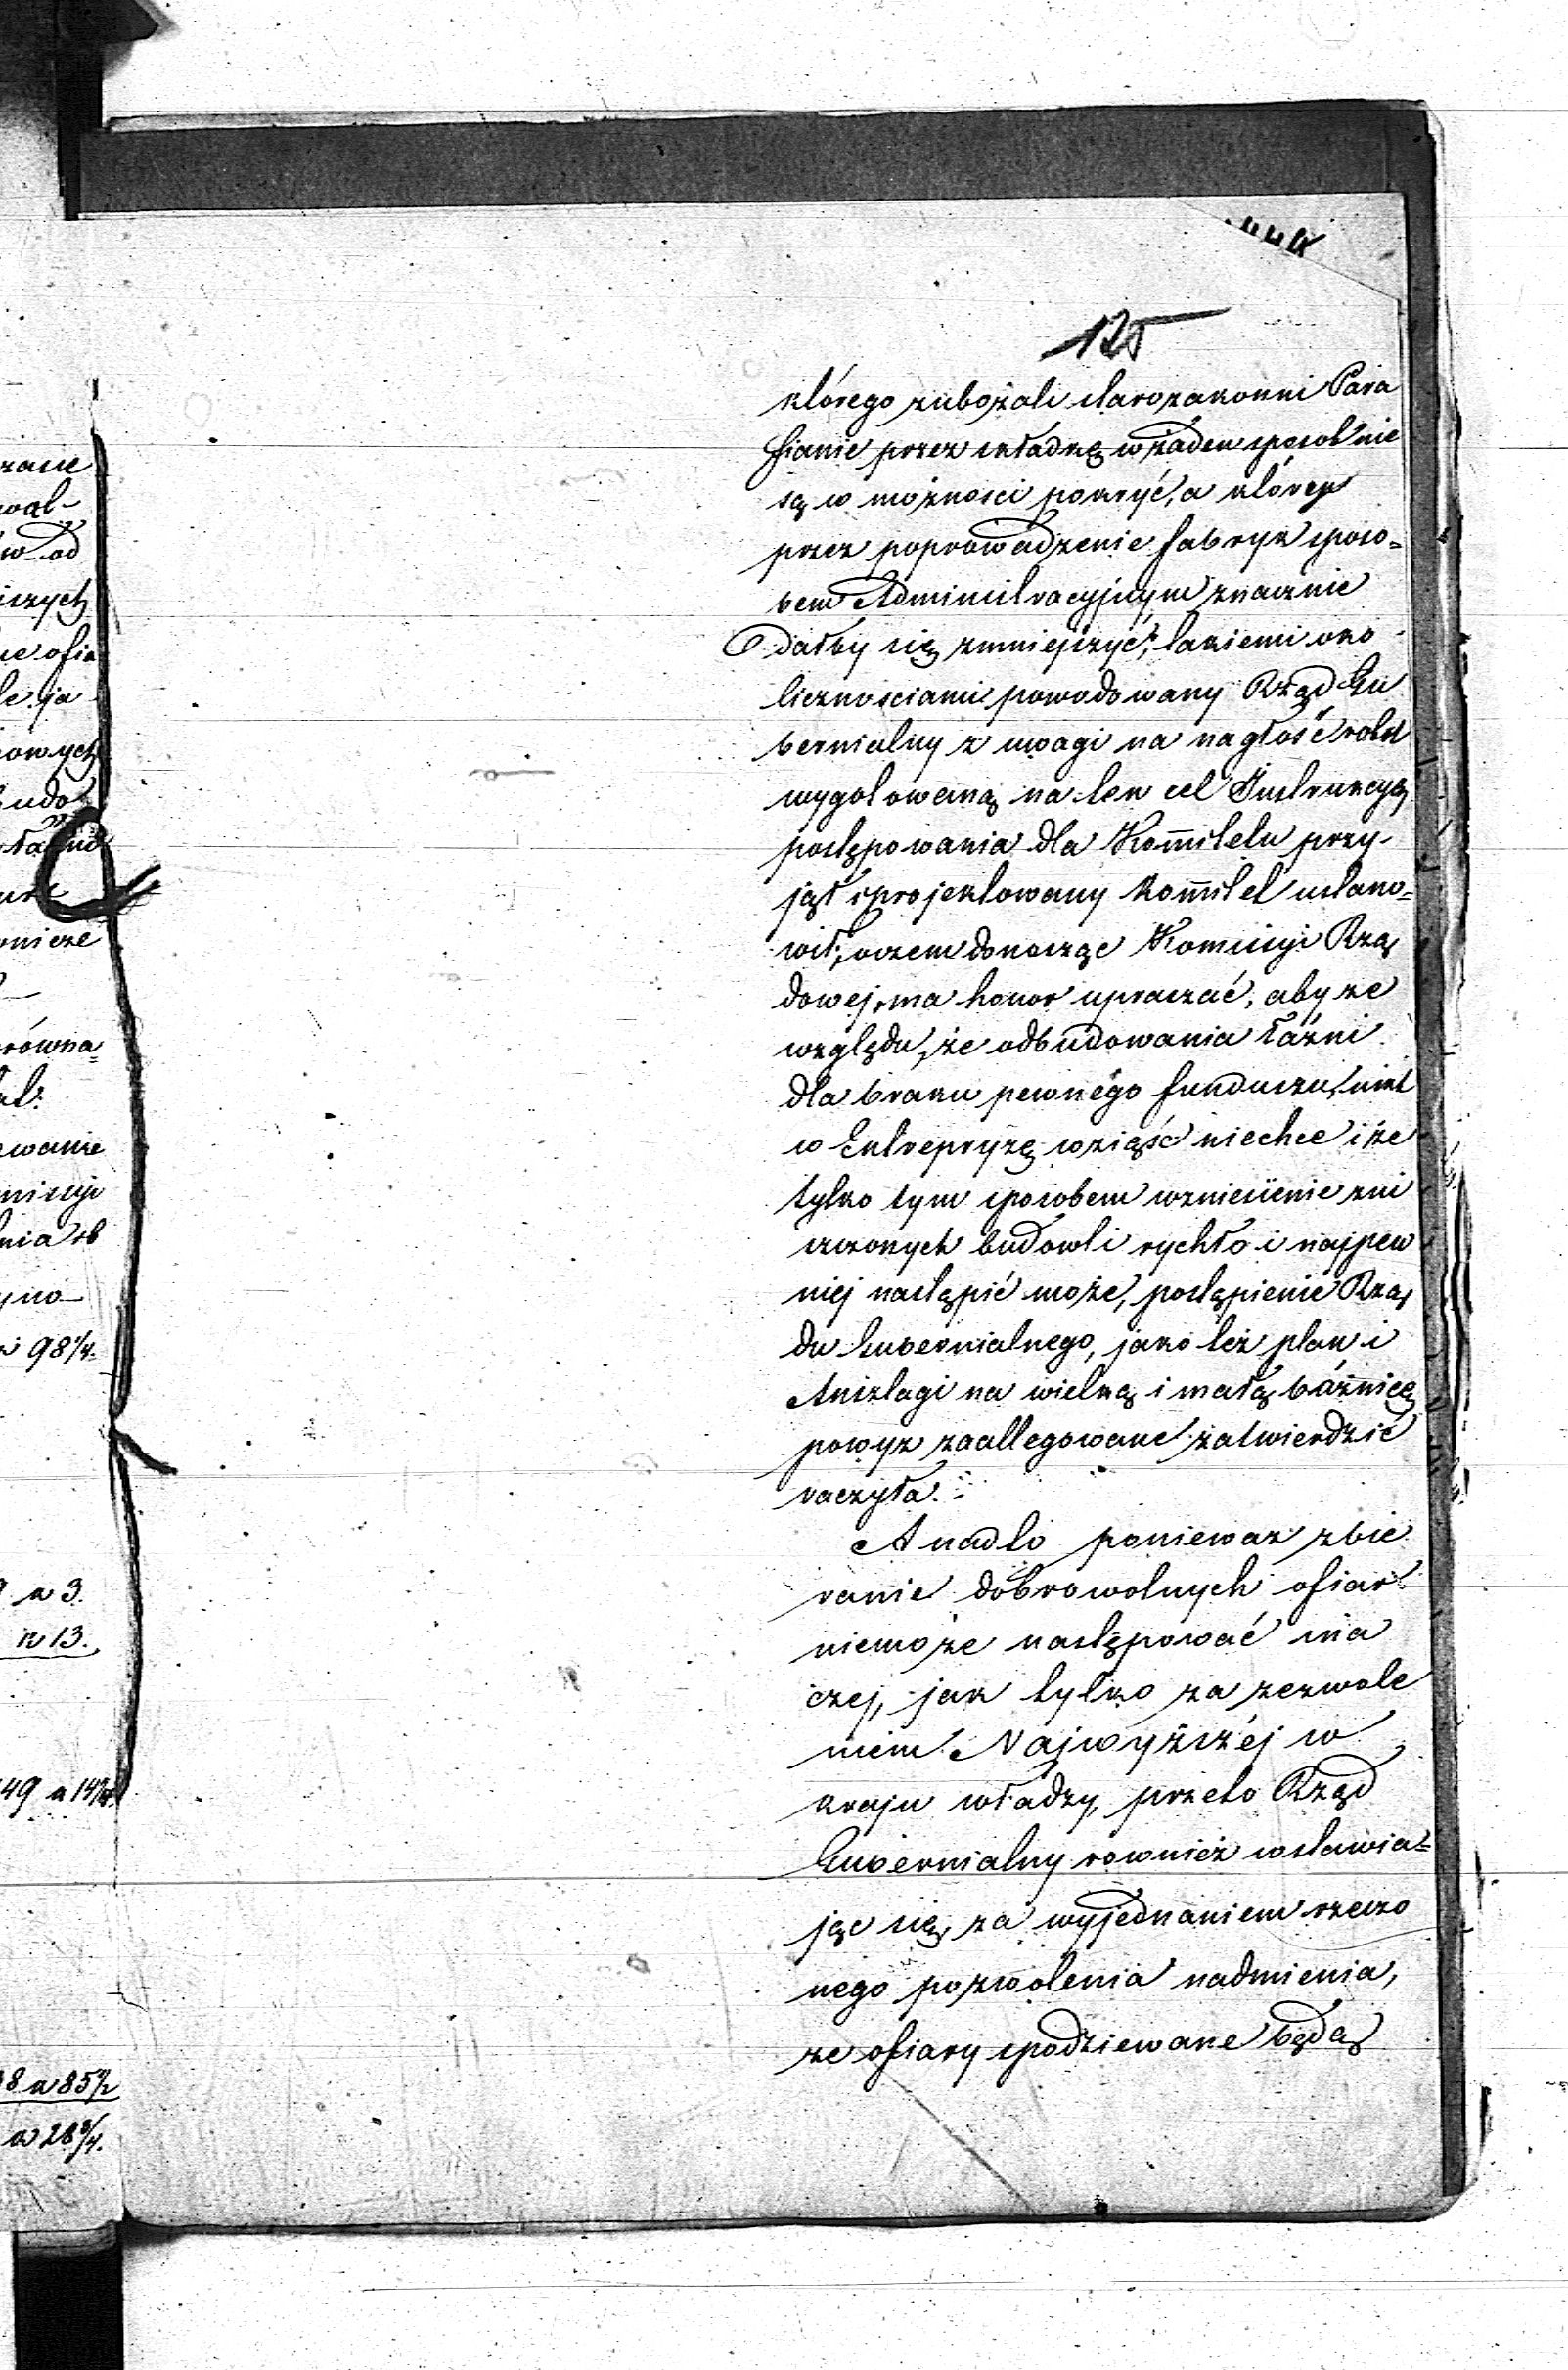 125
którego zubożali starozakonni Para
fianie przez składkę w żaden sposób nie
są w możności pokryć, a który
przez poprowadzenie fabryk sposo=
bem Administracyjnym znacznie
dałby się zmniejszyć; takiemi oko
licznościami powodowany Rząd Gu
bernialny z uwagi na nagłość robót
wygotowaną na ten cel Instrukcyą
postępowania dla Komitetu przy-
jął i projektowany Komitet ustano=
wił, o czem donosząc Komissyi Rzą
dowej, ma honor upraszać, aby ze
względu, że odbudowania łaźni
dla braku pewnego funduszu, nikt
w Entrepryzę wziąść niechce i że
tylko tym sposobem wzniesienie zni
szczonych budowli rychło i najpew
niej nastąpić może, postąpienie Rzą
du Gubernialnego, jako też plan i
Anszlagi na wielką i małą bóżnicę
powyż zaallegowane zatwierdzić
raczyła.
A nadto ponieważ zbie
ranie dobrowolnych ofiar
niemoże następować ina
czej, jak tylko za zezwole
niem Najwyższéj w
kraju władzy, przeto Rząd
Gubernialny rownież wstawia=
jąc się, za wyjednaniem rzeczo
nego pozwolenia nadmienia,
że ofiary spodziewane będą